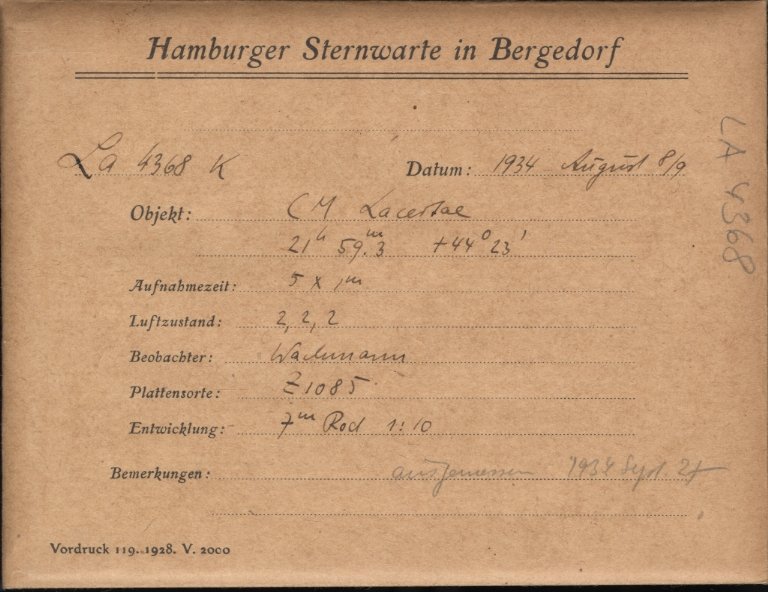 Hamburger Sternwarte in Bergedorf
La 4368 K Datum: 1934 August 8/9
Objekt: CM Lacertae
21ʰ 59.ᵐ3 +44⁰ 23'
Aufnahmezeit: 5 x 1ᵐ
Luftzustand: 2, 2, 2
Beobachter: Wachmann
Plattensorte: Z 1085
Entwicklung: 7ᵐ Rod 1:10
Bemerkungen: ausgemessen 1934 Sept.
Vordruck 119. 1928. V. 2000
LA 4368